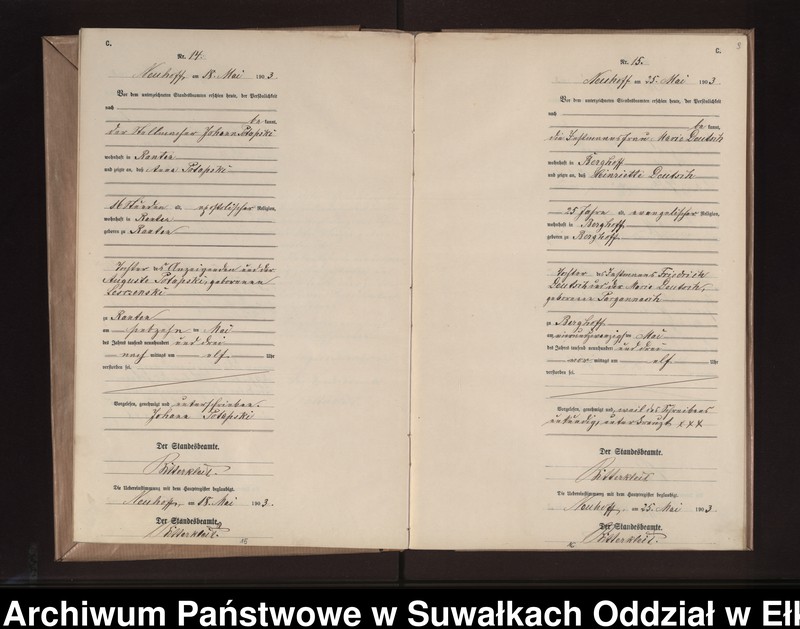 C.
Nr. 14.
Neuhoff, am 18. Mai 1903.
Vor dem unterzeichneten Standesbeamten erschien heute, der Persönlichkeit
nach
be kannt,
der Johann Potapski
wohnhaft in Ranten
und zeigte an, daß Anna Potapski
16 Stunden a. apostolischer Religion,
wohnhaft in Ranten
geboren zu Ranten
Tochter des Anzeigenden und der
Auguste Potapski, geborenen
zu Ranten
am siebzehn ten Mai
des Jahres tausend neunhundert und drei
nach mittags um elf Uhr
verstorben sei.
Vorgelesen, genehmigt und unterschrieben.
Johann Potapski
Der Standesbeamte.
Bitterkleit.
Die Uebereinstimmung mit dem Hauptregister beglaubigt.
Neuhoff, am 18. Mai 1903.
Der Standesbeamte.
Bitterkleit.
C.
3
Nr. 15.
Neuhoff am 25. Mai 1903
Vor dem unterzeichneten Standesbeamten erschien heute, der Persönlichkeit
nach
be kannt,
die Instmannsfrau Marie Deutsch
wohnhaft in Berghoff
und zeigte an, daß Henriette Deutsch
25 Jahre a. evangelischer Religion,
wohnhaft in Berghoff
geboren zu Berghoff
Tochter des Instmanns Friedrich
Deutsch und der Marie Deutsch,
geborener
zu Berghoff
am vierundzwanzig ten Mai
des Jahres tausend neunhundert und drei
vor mittags um elf Uhr
verstorben sei.
Vorgelesen, genehmigt und, weil des Schreibens
unkundig, unterkreuzt xxx
Der Standesbeamte.
Bitterkleit
Die Uebereinstimmung mit dem Hauptregister beglaubigt.
Neuhoff, am 25. Mai 1903.
Der Standesbeamte.
Bitterkleit.
Archiwum Państwowe w Suwałkach Oddział w Eł